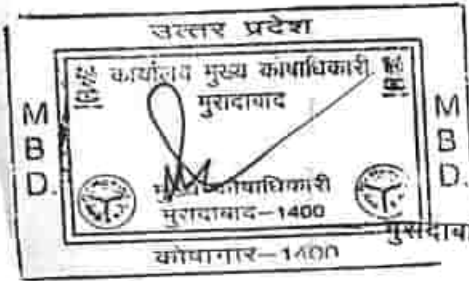 उत्तर प्रदेश
कार्यालय मुख्य कोषाधिकारी
मुरादाबाद
M
B
D.
M
B
D.
कोषाधिकारी
मुरादाबाद-1400
कोषागार-1400